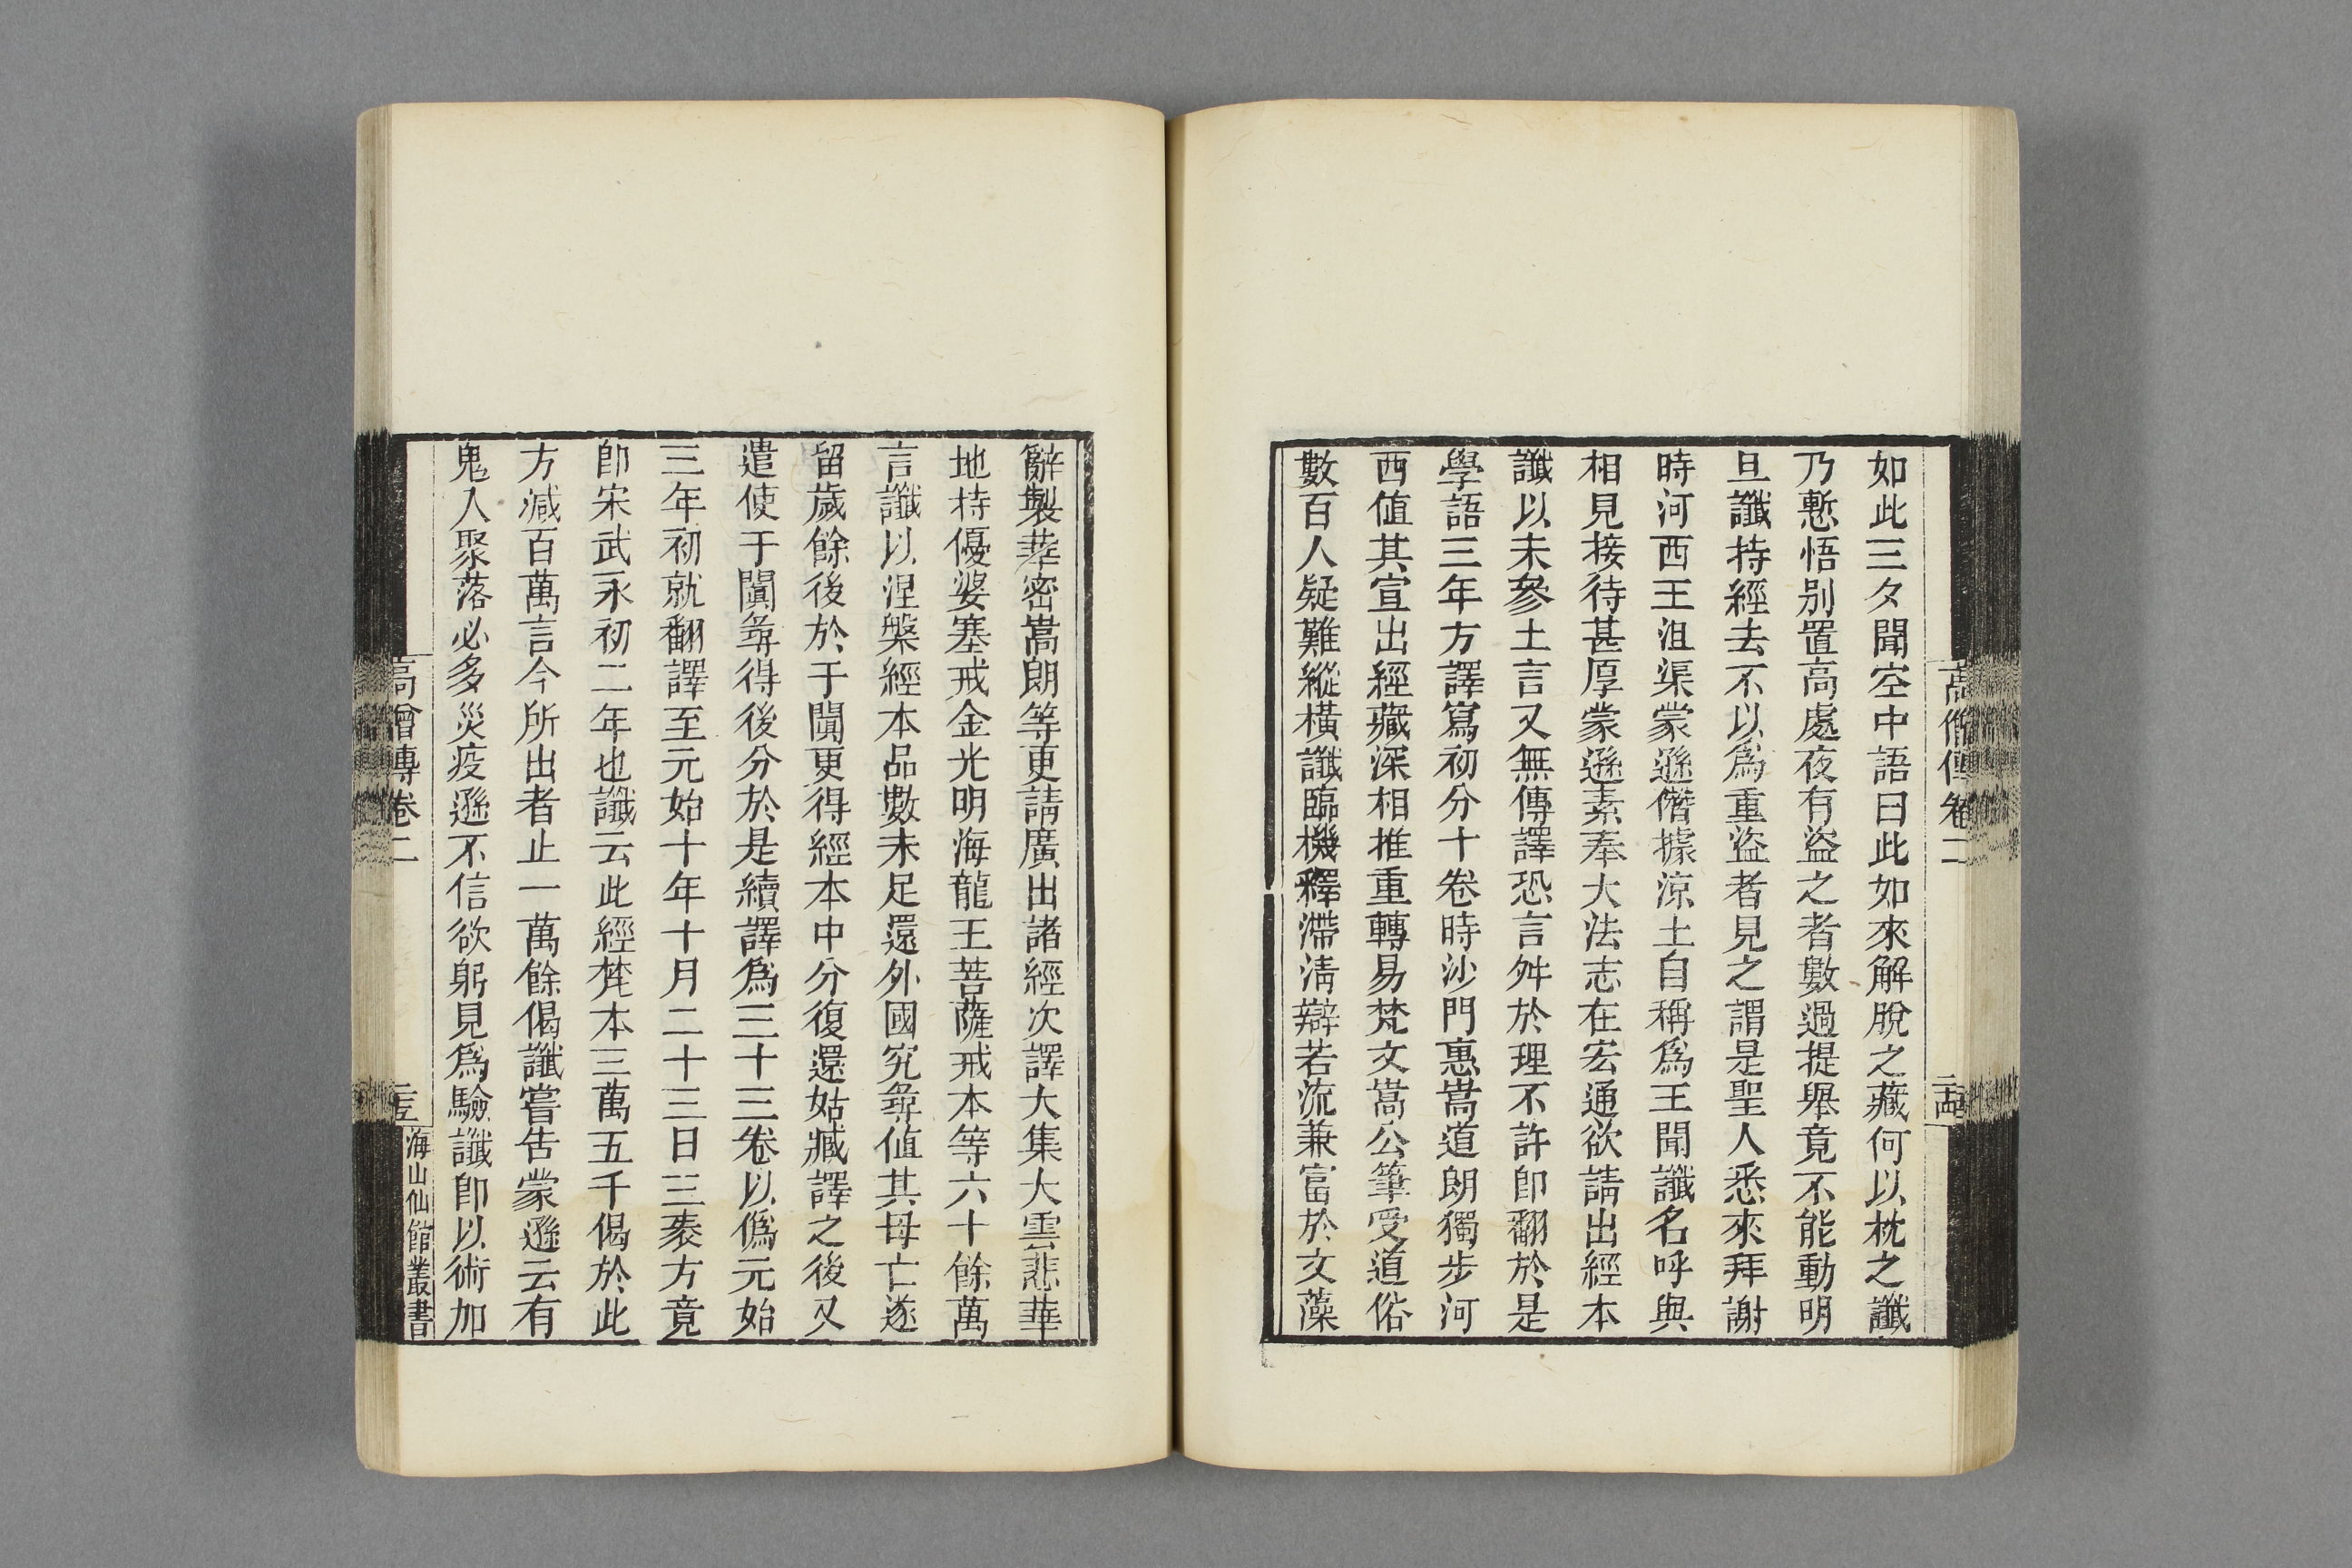 高僧傳卷二
二十四
如此三夕聞空中語曰此如來解脫之藏何以枕之讖
乃慙悟别置高處夜有盜之者數過提舉竟不能動明
旦讖持經去不以爲重盜者見之謂是聖人悉來拜謝
時河西王沮渠蒙遜僭據涼土自稱爲王聞讖名呼與
相見接待甚厚蒙遜素奉大法志在宏通欲請出經本
讖以未參土言又無傳譯恐言舛於理不許卽翻於是
學語三年方譯寫初分十卷時沙門惠嵩道朗獨步河
西値其宣出經藏深相推重轉易梵文嵩公筆受道俗
數百人疑難縱橫讖臨機釋滯淸辯若流兼富於文藻
辭製華密嵩朗等更請廣出諸經次譯大集大雲悲華
地持優婆塞戒金光明海龍王菩薩戒本等六十餘萬
言讖以涅槃經本品數未足還外國究尋値其母亡遂
留歲餘後於于闐更得經本中分復還姑臧譯之後又
遣使于闐尋得後分於是續譯爲三十三卷以僞元始
三年初就翻譯至元始十年十月二十三日三袠方竟
卽宋武永初二年也讖云此經梵本三萬五千偈於此
方減百萬言今所出者止一萬餘偈讖嘗告蒙遜云有
鬼人聚落必多災疫遜不信欲躬見爲驗讖卽以術加
高僧傳卷二
二十五
海山仙館叢書